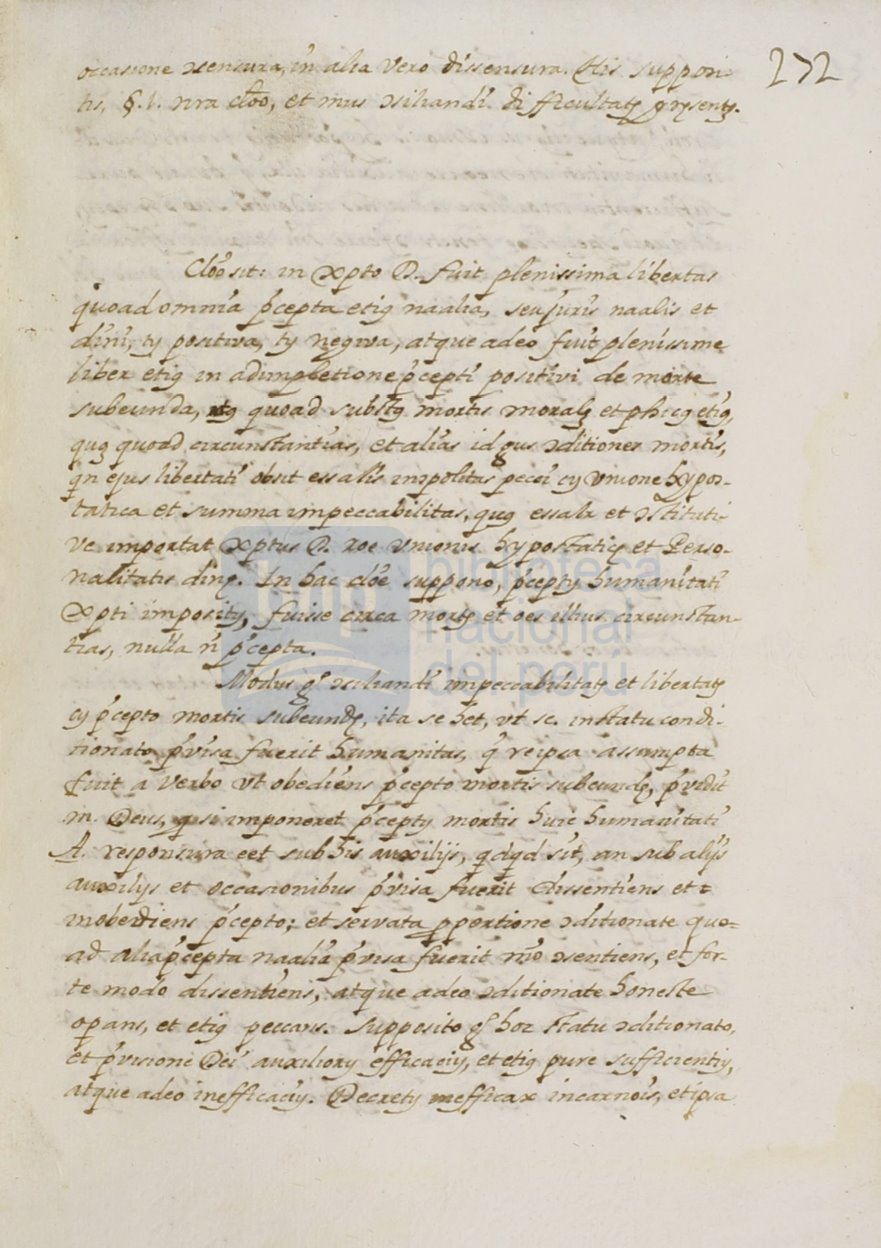 occasione ↄsensura, in alia vero dissensura. His supposi-
tis, §.1. nr̃a clõo, et mus ↄsiliandi difficultatẽ pr̃sentẽ.
272
Clõo sit: in Xpto D. fuit plenissima libertas
quoad omnia p̃cepta etiã nãalia, seu juris nãalis et
diuini, tũ positiva, tũ negiva, atque adeo fuit plenissime
liber etiã in adimpletione p̃cepti positivi de morte
subeunda, quoad substã mortis moralẽ et phicã etiã,
quã quoad circunstantias, et alias id gus ↄditiones mortis,
qn̄ ejus libertati obsit essalis impolitas peccī cũ unione hypos-
tatica et summa impeccabilitas, quã essalr et ↄstituti-
ve importat Xptus D. rõe unionis hypostaticę et Perso-
nalitatis dinę. In hac clõe suppono, p̃ceptũ humanitati
Xpti impositũ, fuisse circa mortẽ et oẽs illius circunstan-
tias, nulla n̄ p̃cepta.
Modus g° ↄsiliandi impeccabilitatẽ et libertatẽ
cũ p̃cepto mortis subeundę, ita se het, vt sc. in statu condi-
tionato p̃visa fuerit humanitas, q̃ reipsa assumpta
fuit a Verbo vt obediens p̃cepto mortis subeundę, p̃vidit
n. Deus, q̃ si imponeret p̃ceptũ mortis huic humanitati
A. responsura eẽt sub his auxilijs, qdqd sit, an sub alijs
auxilijs et occasionibus p̃visa fuerit dissentiens et
inobediens p̃cepto; et servata p̱portione ↄditionate quo-
ad alia p̃cepta nãalia p̃visa fuerit m̃o ↄsentiens, et for-
te modo dissentiens, atque adeo ↄditionate honeste
opans, et etiã peccans. Supposito g° hoc statu ↄditionato,
et p̃visione Dei auxiliorũ efficaciũ, et etiã pure sufficientiũ,
atque adeo inefficaciũ. Decretũ inefficax incarnõis, et ipsa
biblioteca
nacional
del perú